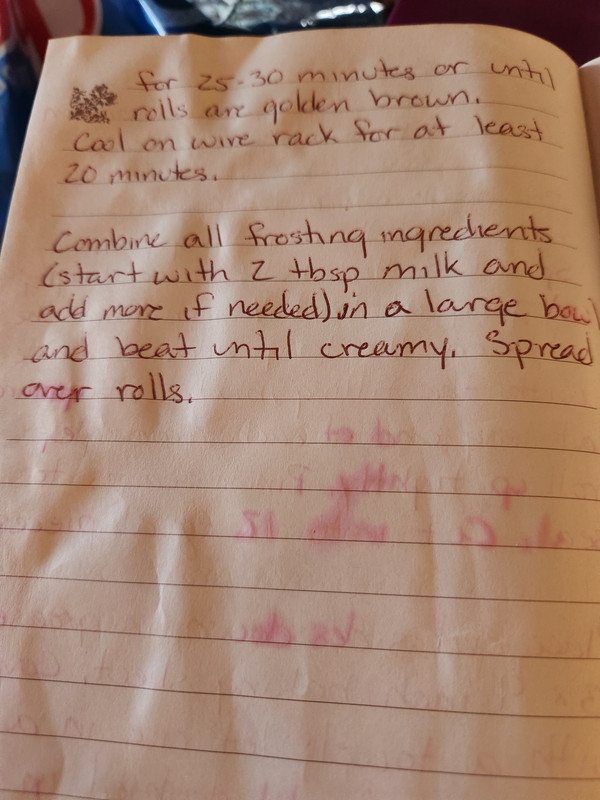 for 25-30 minutes or until
rolls are golden brown.
Cool on wire rack for at least
20 minutes.
Combine all frosting ingredients
(start with 2 tbsp milk and
add more if needed) in a large bowl
and beat until creamy. Spread
over rolls.